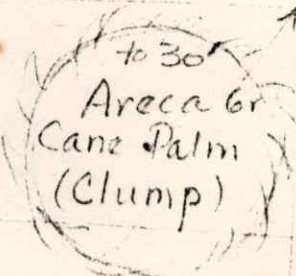 to 30'
Areca or
Cane Palm
(Clump)